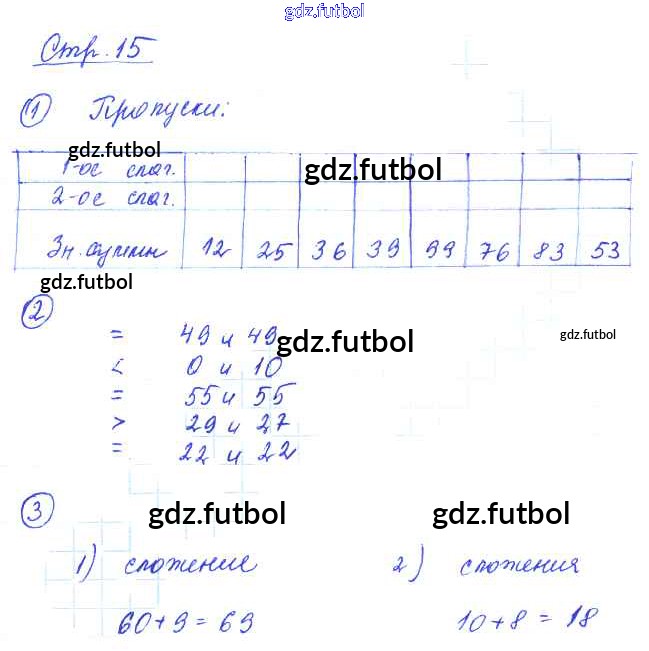 gdz.futbol
Стр. 15
1 Пропуски:
gdz.futbol
1-ое слаг. gdz.futbol
2-ое слаг.
Зн. суммы 12 25 36 39 99 76 83 53
gdz.futbol
2
= 49 и 49 gdz.futbol gdz.futbol
< 0 и 10
= 55 и 55
> 29 и 27
= 22 и 22
3 gdz.futbol gdz.futbol
1) сложение 2) сложения
60+9=69 10+8=18